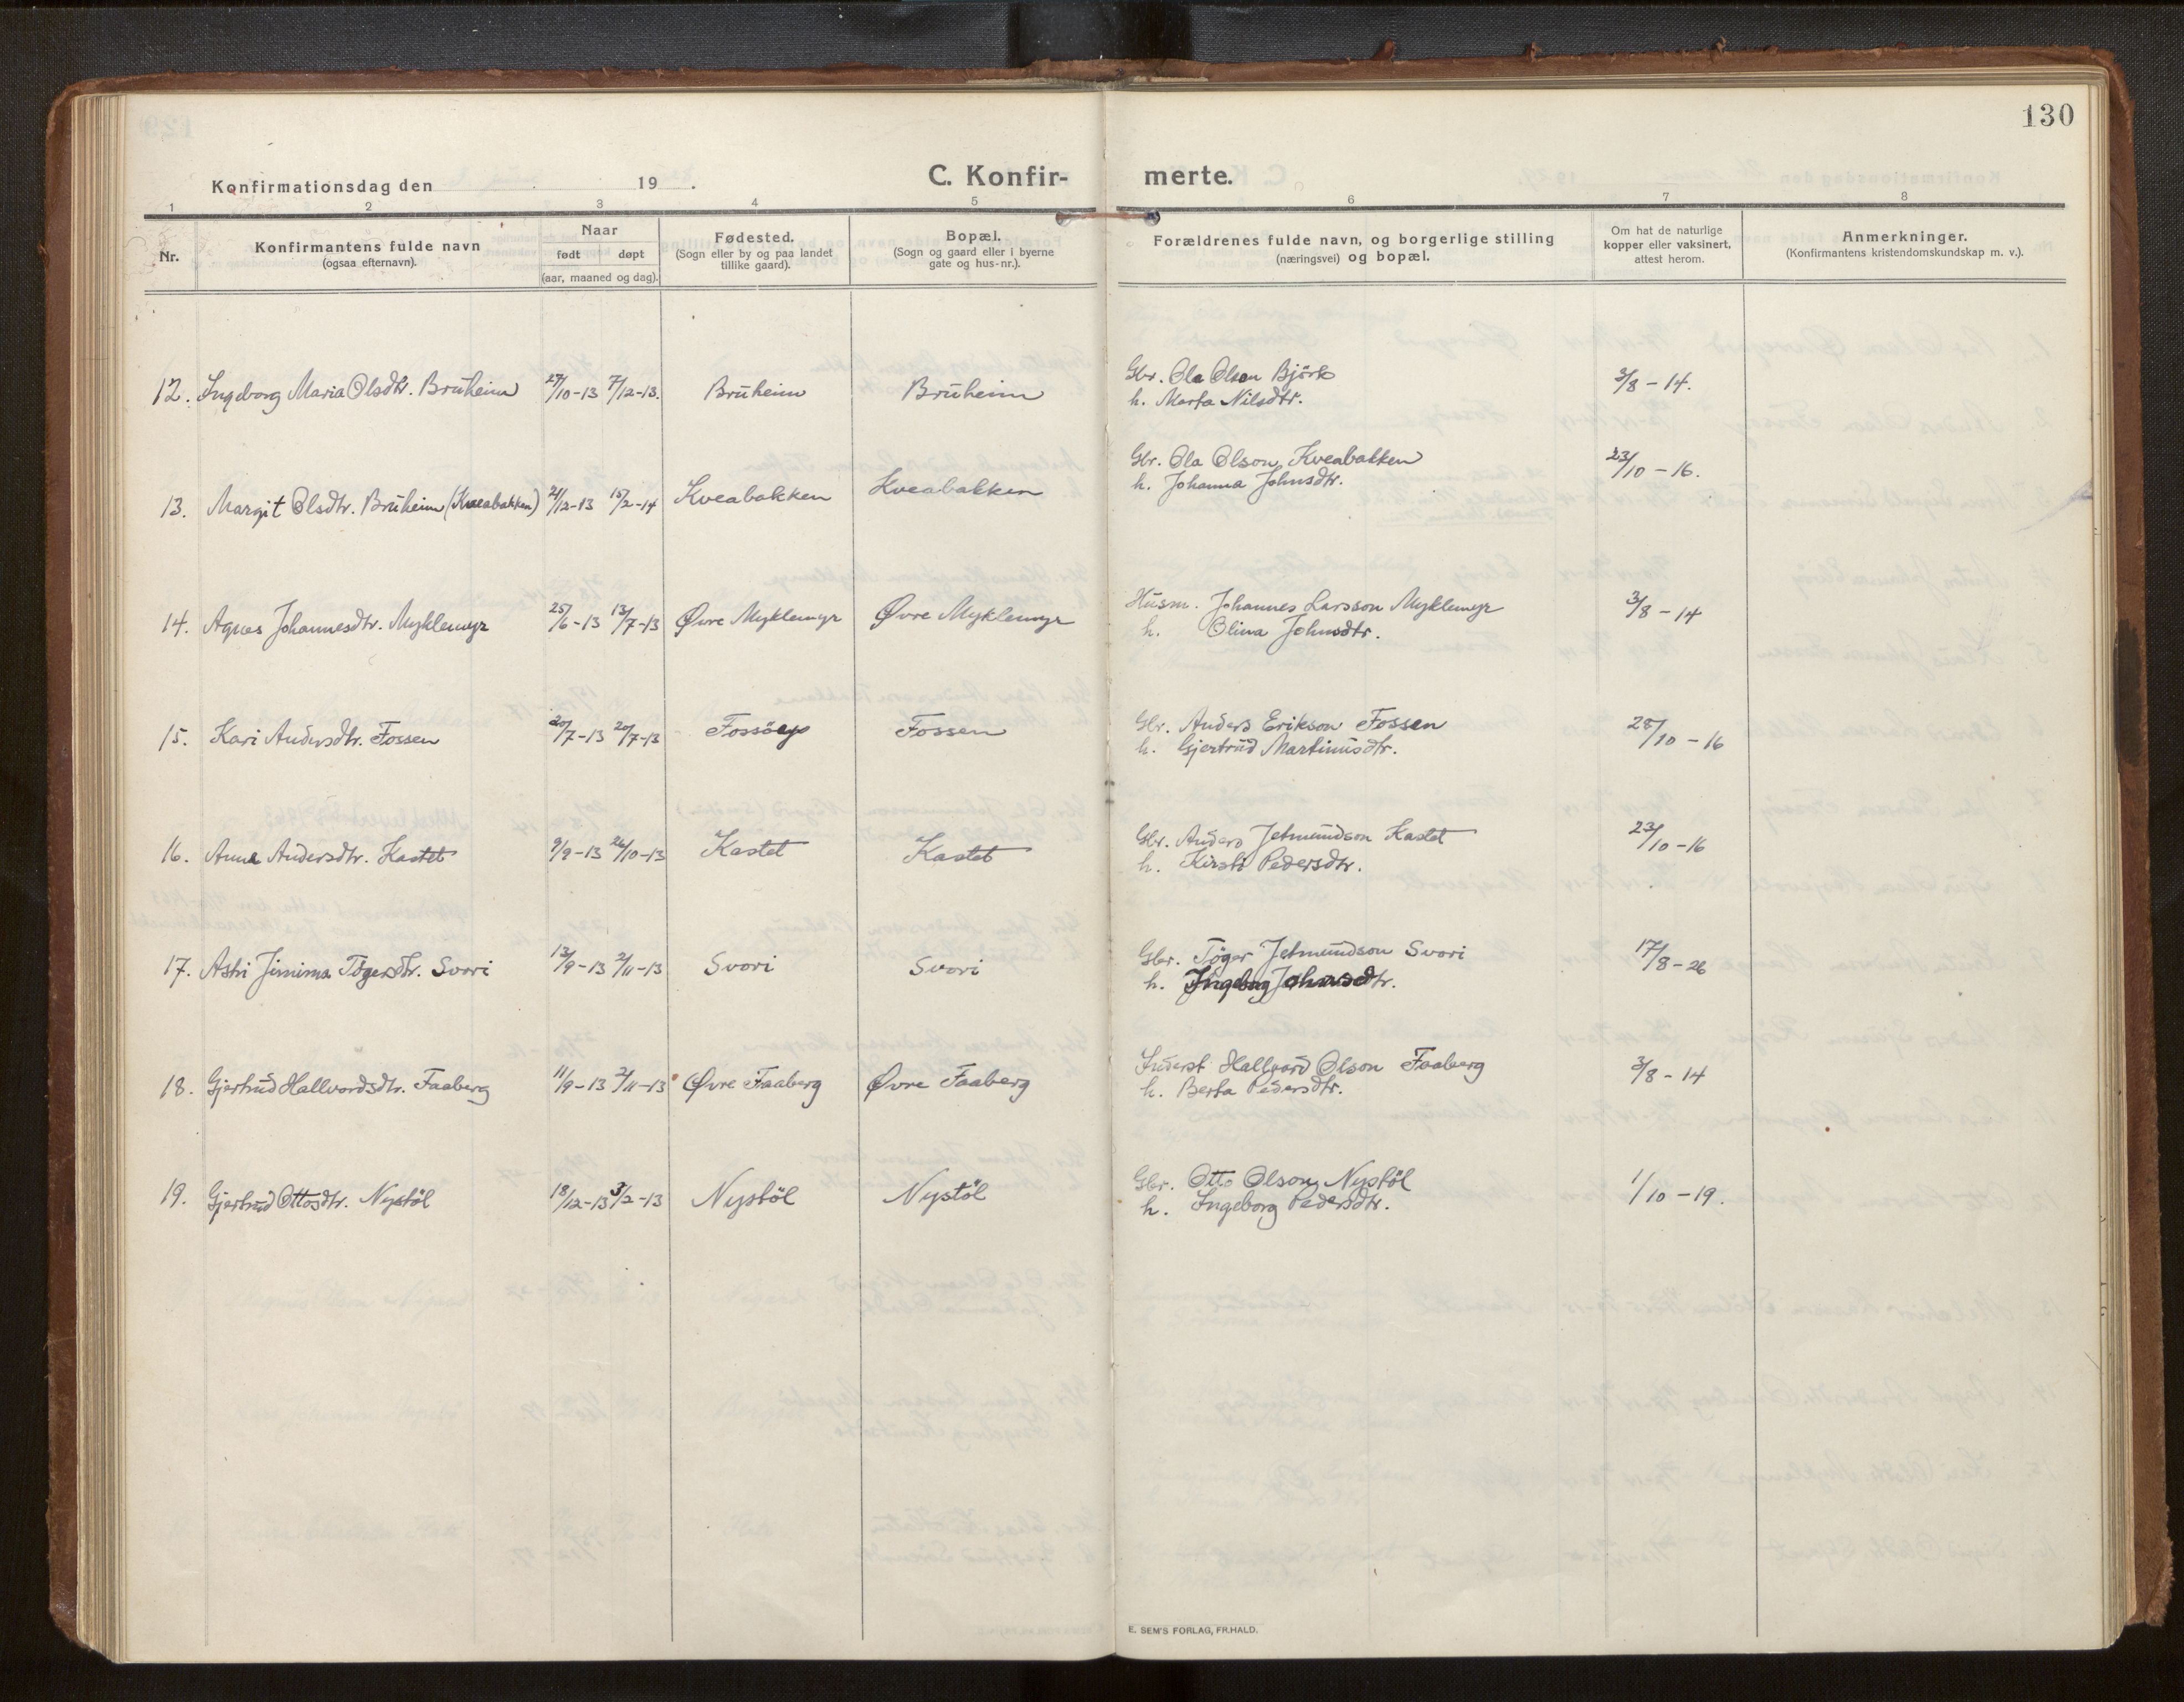 130
Konfirmationsdag den 19 .
C. Konfir-
merte.
1 2 3 4 5 6 7 8
Nr.
Konfirmantens fulde navn
(ogsaa efternavn).
Naar
født døpt
(aar, maaned og dag).
Fødested.
(Sogn eller by og paa landet
tillike gaard).
Bopæl.
(Sogn og gaard eller i byerne
gate og hus-nr.).
Forældrenes fulde navn, og borgerlige stilling
(næringsvei) og bopæl.
Om hat de naturlige
kopper eller vaksinert,
attest herom.
Anmerkninger.
(Konfirmantens kristendomskundskap m. v.).
12. Ingeborg Maria Olsdtr. Bruheim 27/10-13 7/12-13. Bruheim Bruheim Gbr. Ola Olson Björk 3/8-14.
h. Marta Nilsdtr.
13. Margit Olsdtr. Bruheim (Kveabakken) 21/12-13 15/2-14 Kveabakken Kveabakken Gbr. Ola Olson Kveabakken 23/10-16.
h. Johanna Johnsdtr.
14. Agnes Johannesdtr. Myklemyr 25/6-13 13/7-13 Øvre Myklemyr Øvre Myklemyr Husm. Johannes Larsson Myklemyr 3/8-14
h. Olina Johnsdtr.
15. Kari Andersdtr. Fossen 20/7-13 Fossöen Fossen Gbr. Anders Erikson Fossen 28/10-16
h. Gjertrud Martinusdtr.
16. Anna Andersdtr. Kastet 9/9-13 26/10-13 Kastet Kastet Gbr. Anders Jetmundson Kastet 23/10-16
h. Kirsti Pedersdtr.
17. Astri Jimima Tögersdtr. Svori 13/9-13 2/11-13 Svori Svori Gbr. Töger Jetmundson Svori 17/8-26
h. Ingeborg Johnsdtr.
18. Gjertrud Hallvordsdtr. Faaberg 11/9-13 2/11-13 Øvre Faaberg Øvre Faaberg Inderst Hallvard Olson Faaberg 3/8-14
h. Berta Pedersdtr.
19. Gjertrud Ottosdtr. Nystöl 18/12-13 3/2-13 Nystöl Nystöl Gbr. Otto Olson Nystöl 1/10-19.
h. Ingeborg Pedersdtr.
E. SEM'S FORLAG, FR.HALD.